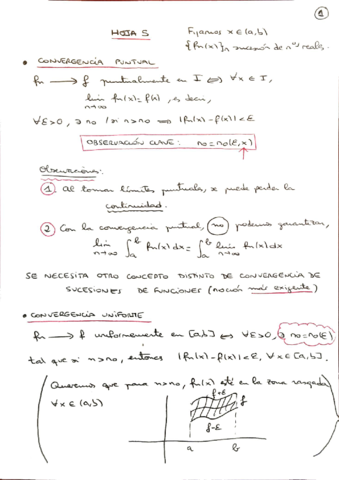 1
HOJA 5
Fijamos x ∈ (a,b)
{fn(x)}n sucesión de nos reales.
• CONVERGENCIA PUNTUAL
fn → f puntualmente en I ⇔ ∀x ∈ I,
lim n→∞ fn(x) = f(x), es decir,
∀ε>0, ∃ no / si n>no ⇒ |fn(x) - f(x)| < ε
OBSERVACIÓN CLAVE: no = no(ε, x)
Observaciones:
① Al tomar límites puntuales, x puede perder la
continuidad.
② Con la convergencia puntual, no podemos garantizar,
lim n→∞ ∫ₐᵇ fn(x)dx = ∫ₐᵇ lim n→∞ fn(x)dx
SE NECESITA OTRO CONCEPTO DISTINTO DE CONVERGENCIA DE
SUCESIONES DE FUNCIONES (noción más exigente)
• CONVERGENCIA UNIFORME
fn → f uniformemente en [a,b] ⇔ ∀ε>0, ∃ no = no(ε)
tal que si n>no, entonces |fn(x) - f(x)| < ε, ∀x ∈ [a,b].
(Queremos que para n>no, fn(x) esté en la zona rasgada
∀x ∈ (a,b))
f+ε
f
f-ε
a b